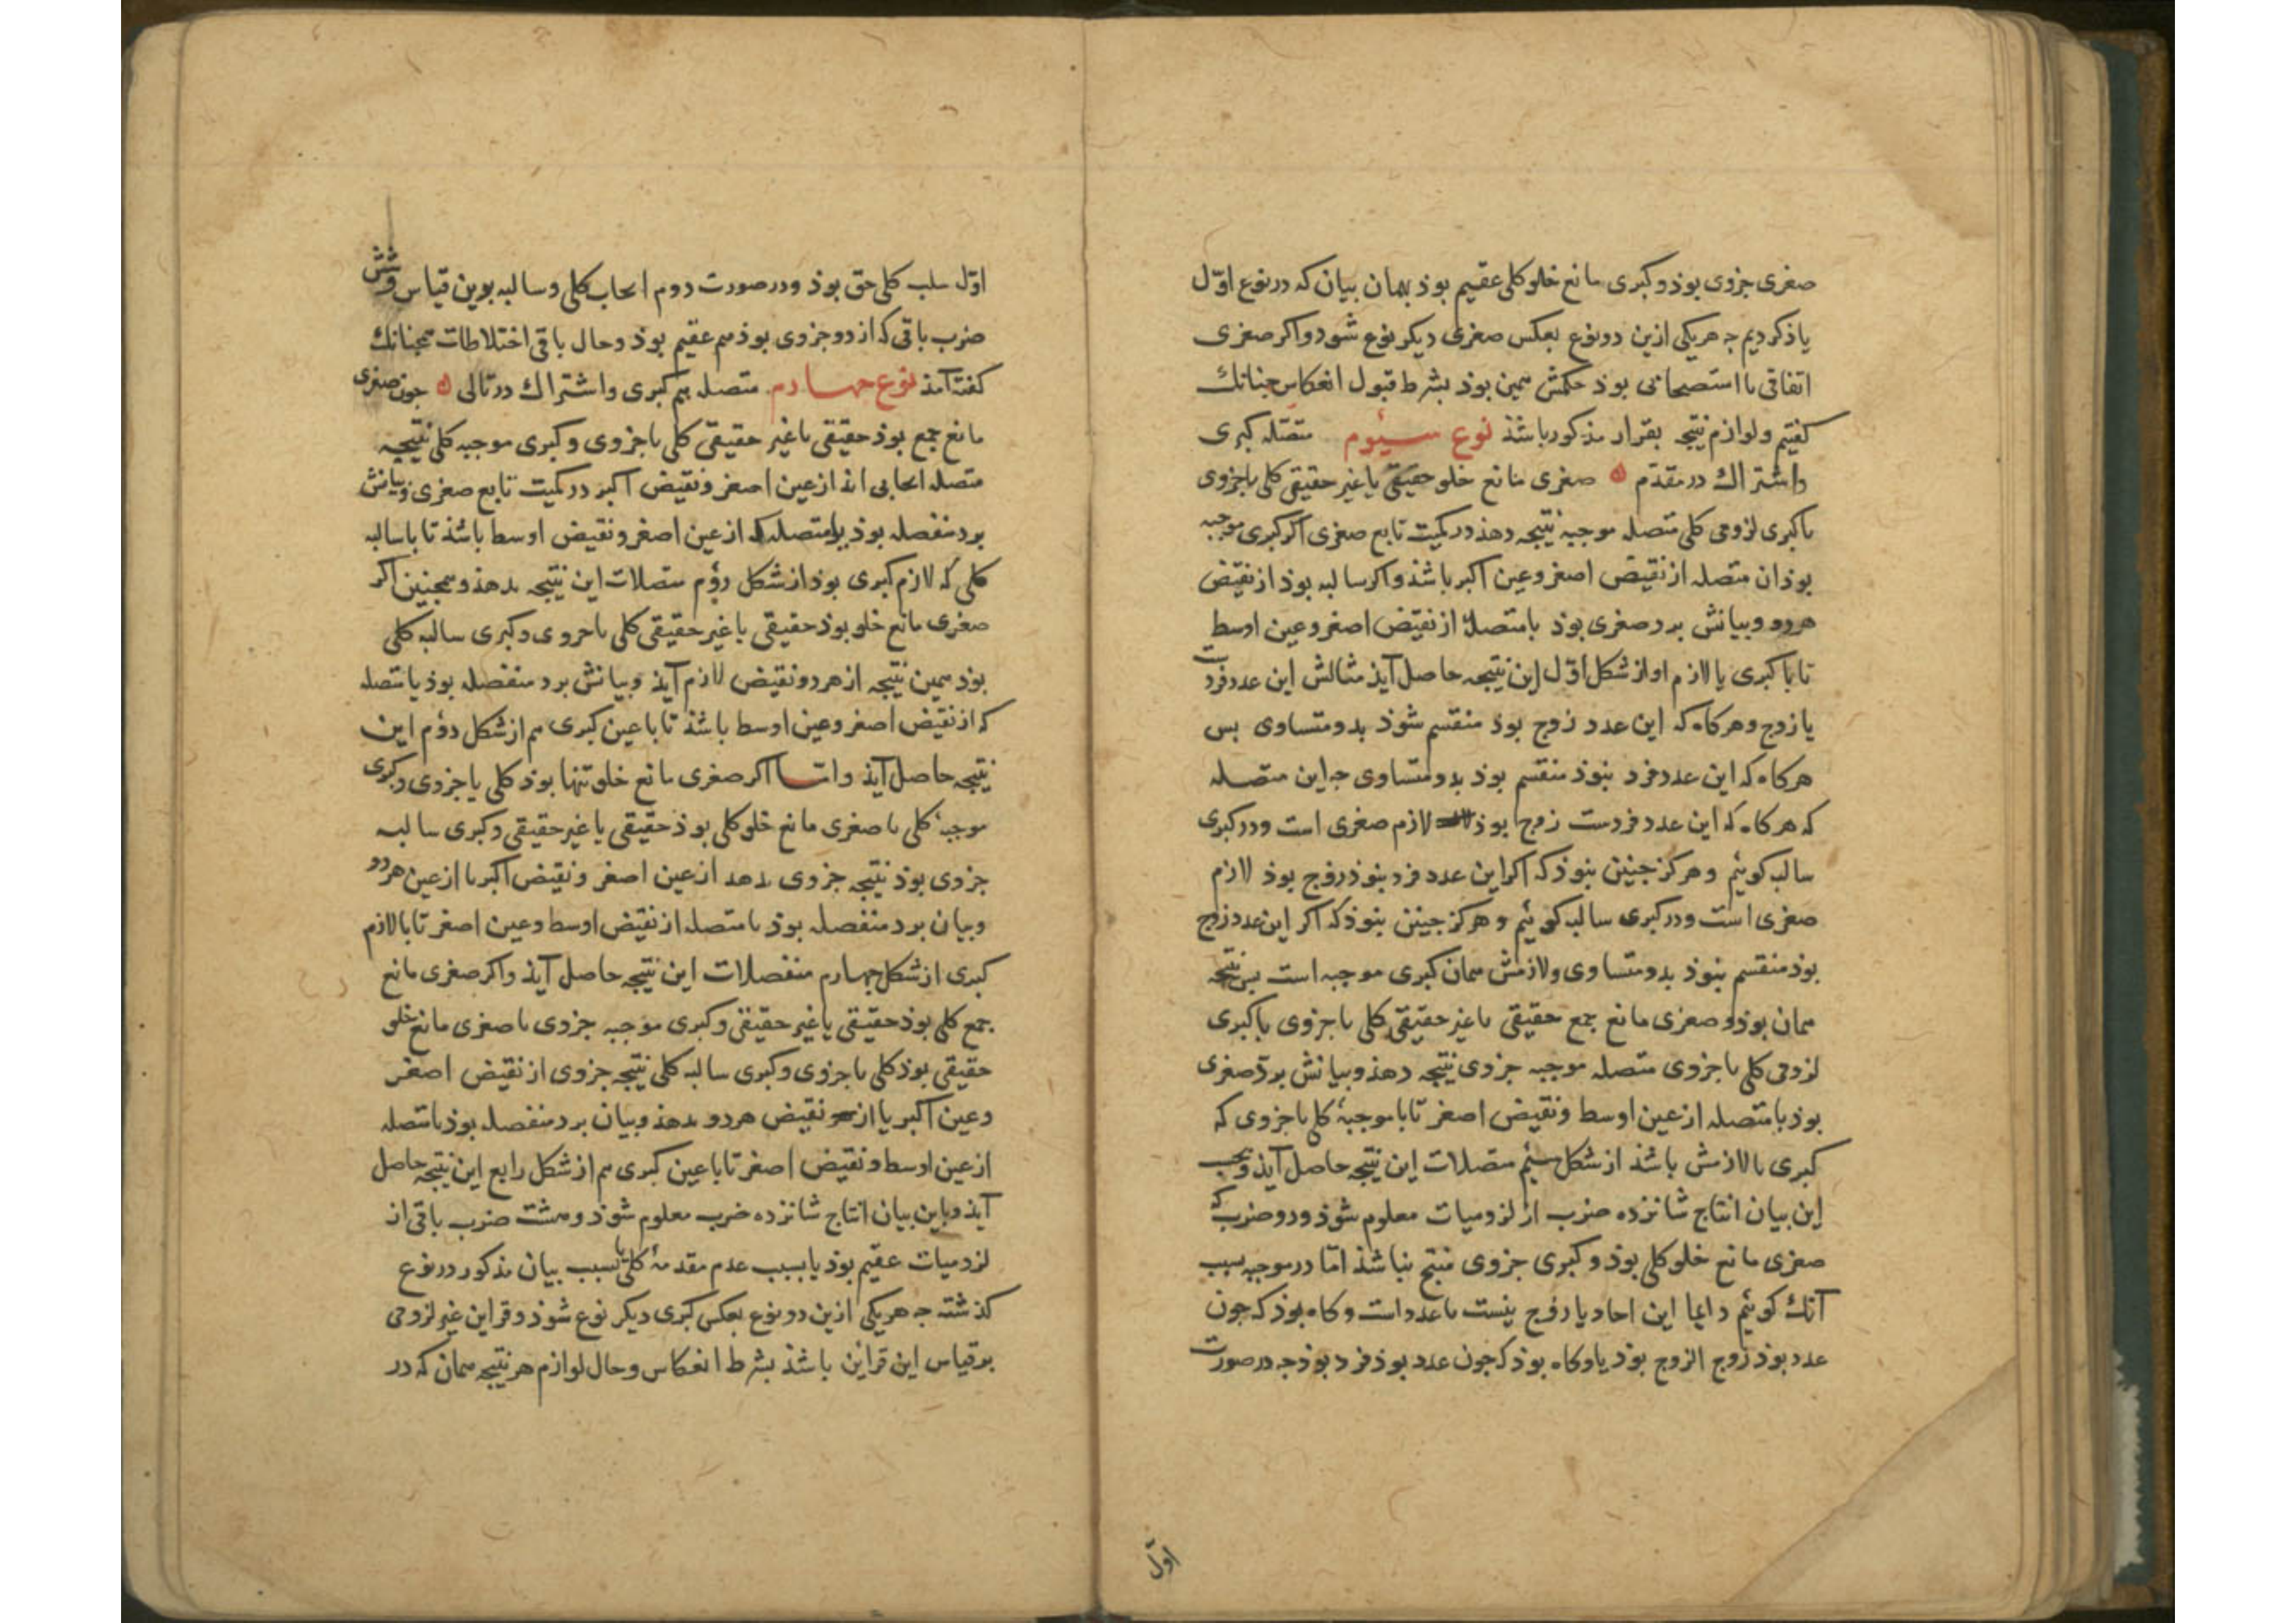 صغری جزوی بوذ و کبری مانع خلو کلی عقیم بوذ بهمان بیان که در نوع اوّل
یاذ کردیم جه هریکی ازین دو نوع بعکس صغری دیکر نوع شود و اکر صغری
اتفاقی یا استصحابی بوذ حکمش همین بوذ بشرط قبول انعکاس جنانك
کفتیم و لوازم نتیجه بقرار مذکور باشذ نوع سیُوم متصله کبری
و اشتراك در مقدّم ه صغری مانع خلو حقیقی یا غیر حقیقی کلی یا جزوی
با کبری لزومی کلی متصله موجبه نتیجه دهذ در کمیت تابع صغری اکر کبری موجبه
بوذ ان متصله از نقیض اصغر و عین اکبر باشذ و اکر سالبه بوذ از نقیض
هردو و بیانش برد صغری بوذ بامتصلهٔ از نقیض اصغر و عین اوسط
تا با کبری یا لازم او از شکل اوّل این نتیجه حاصل آیذ مثالش این عدد فردست
یا زوج و هرکاه که این عدد زوج بوذ منقسم شوذ بدو متساوی بس
هرکاه که این عدد فرد نبوذ منقسم بوذ بدو متساوی جه این متصله
که هرکاه که این عدد فردست زوج بوذ لازم صغری است و در کبری
سالبه کوئیم و هرکز جنین نبوذ که اکر این عدد فرد نبوذ زوج بوذ لازم
صغری است و در کبری سالبه کوئیم و هرکز جنین نبوذ که اکر این عدد زوج
بوذ منقسم نبوذ بدو متساوی و لازمش همان کبری موجبه است بس نتیجه
همان بوذ و صغری مانع جمع حقیقی یا غیر حقیقی کلی یا جزوی با کبری
لزومی کلی یا جزوی متصله موجبه جزوی نتیجه دهذ و بیانش برد صغری
بوذ بامتصله از عین اوسط و نقیض اصغر تا با موجبهٔ کلی یا جزوی که
کبری یا لازمش باشذ از شکل سیُم متصلات این نتیجه حاصل آیذ و بحسب
این بیان انتاج شانزده ضرب از لزومیات معلوم شوذ و دو ضرب که
صغری مانع خلو کلی بوذ و کبری جزوی منتج نباشذ امّا در موجبه بسبب
آنك کوئیم دایما این احاد یا زوج نیست یا عدد است و کاه بوذ که جون
عدد بوذ زوج الزوج بوذ یا و کاه بوذ که جون عدد بوذ فرد بوذ جه در صورت
اوّل
اوّل سلب کلی حق بوذ و در صورت دوم ایجاب کلی و سالبه برین قیاس و شش
ضرب باقی که از دو جزوی بوذ هم عقیم بوذ و حال باقی اختلاطات همجنانك
کفته آمذ نوع جهارم متصله هم کبری و اشتراك در تالی ه جون صغری
مانع جمع بوذ حقیقی یا غیر حقیقی کلی یا جزوی و کبری موجبه کلی نتیجه
متصله ایجابی اند از عین اصغر و نقیض اکبر در کمیت تابع صغری و بیانش
برد منفصله بوذ بامتصله که از عین اصغر و نقیض اوسط باشذ تا با سالبه
کلی که لازم کبری بوذ از شکل دوُم متصلات این نتیجه بدهذ و همجنین اکر
صغری مانع خلو بوذ حقیقی یا غیر حقیقی کلی یا جزوی و کبری سالبه کلی
بوذ همین نتیجه از هردو نقیض لازم آیذ و بیانش برد منفصله بوذ یا متصله
که از نقیض اصغر و عین اوسط باشذ تا با عین کبری هم از شکل دوُم این
نتیجه حاصل آیذ و امّا اکر صغری مانع خلو تنها بوذ کلی یا جزوی و کبری
موجبهٔ کلی یا صغری مانع خلو کلی بوذ حقیقی یا غیر حقیقی و کبری سالبه
جزوی بوذ نتیجه جزوی بدهد از عین اصغر و نقیض اکبر یا از عین هردو
و بیان برد منفصله بوذ بامتصله از نقیض اوسط و عین اصغر تا با لازم
کبری از شکل جهارم منفصلات این نتیجه حاصل آیذ و اکر صغری مانع
جمع کلی بوذ حقیقی یا غیر حقیقی و کبری موجبه جزوی یا صغری مانع خلو
حقیقی بوذ کلی یا جزوی و کبری سالبه کلی نتیجه جزوی از نقیض اصغر
و عین اکبر یا از نقیض هردو بدهذ و بیان برد منفصله بوذ بامتصله
از عین اوسط و نقیض اصغر تا با عین کبری هم از شکل رابع این نتیجه حاصل
آیذ و باین بیان انتاج شانزده ضرب معلوم شوذ و هشت ضرب باقی از
لزومیات عقیم بوذ یا بسبب عدم مقدمهٔ کلی یا بسبب بیان مذکور در نوع
کذشته جه هریکی ازین دو نوع بعکس کبری دیکر نوع شوذ و قراین غیر لزومی
بر قیاس این قراین باشذ بشرط انعکاس و حال لوازم هر نتیجه همان که در